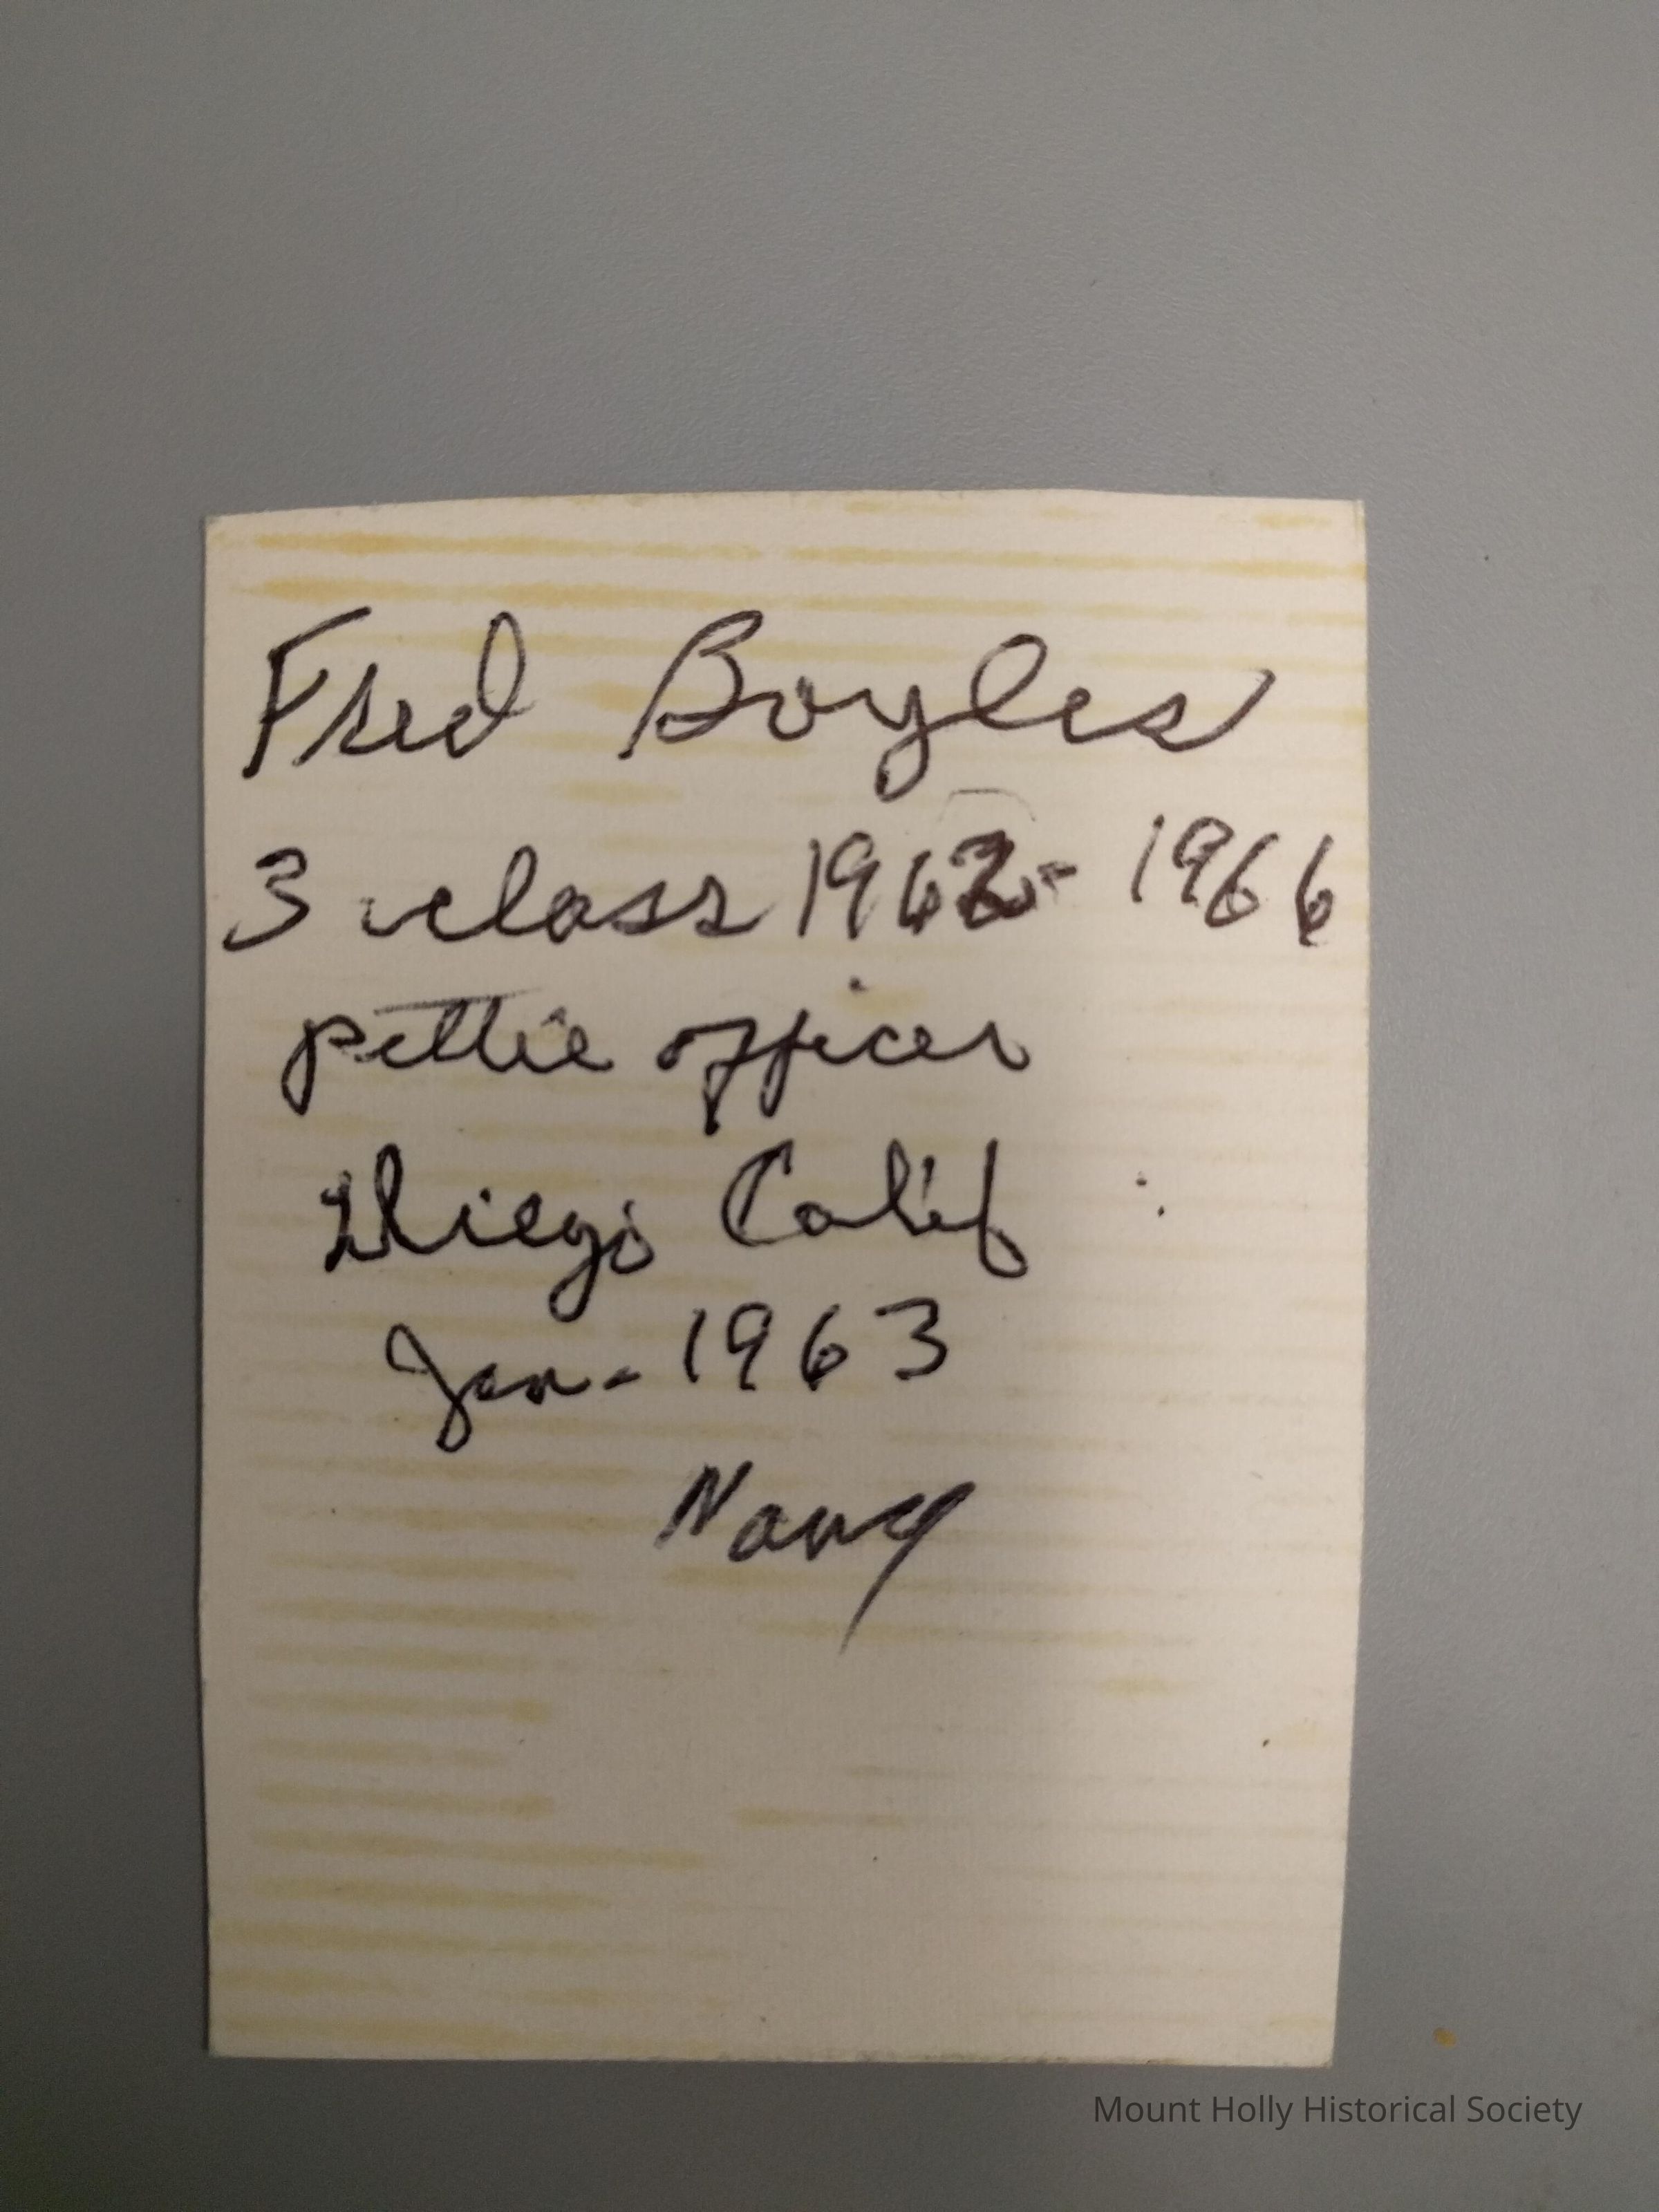 Fred Boyles
3 class 1962- 1966
pettie officer
Diego Calif
Jan- 1963
Navy
Mount Holly Historical Society